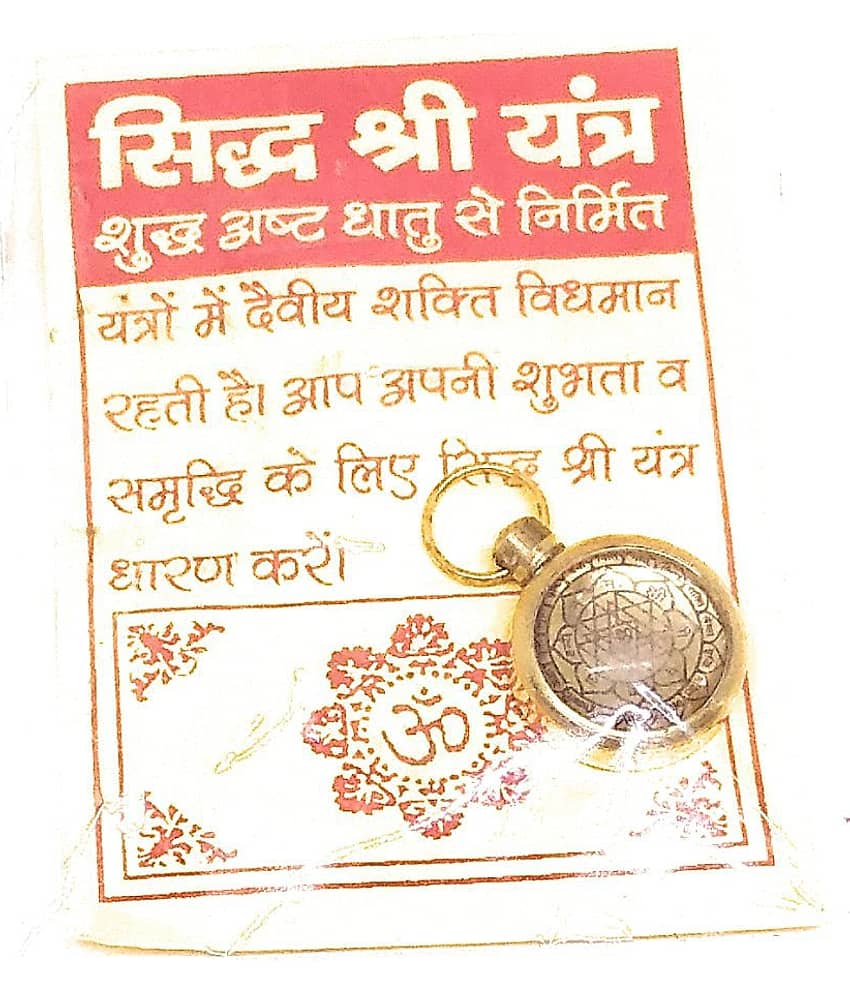 सिद्ध श्री यंत्र
शुद्ध अष्ट धातु से निर्मित
यंत्रों में दैवीय शक्ति विधमान
रहती है। आप अपनी शुभता व
समृद्धि के लिए सिद्ध श्री यंत्र
धारण करें।
ॐ